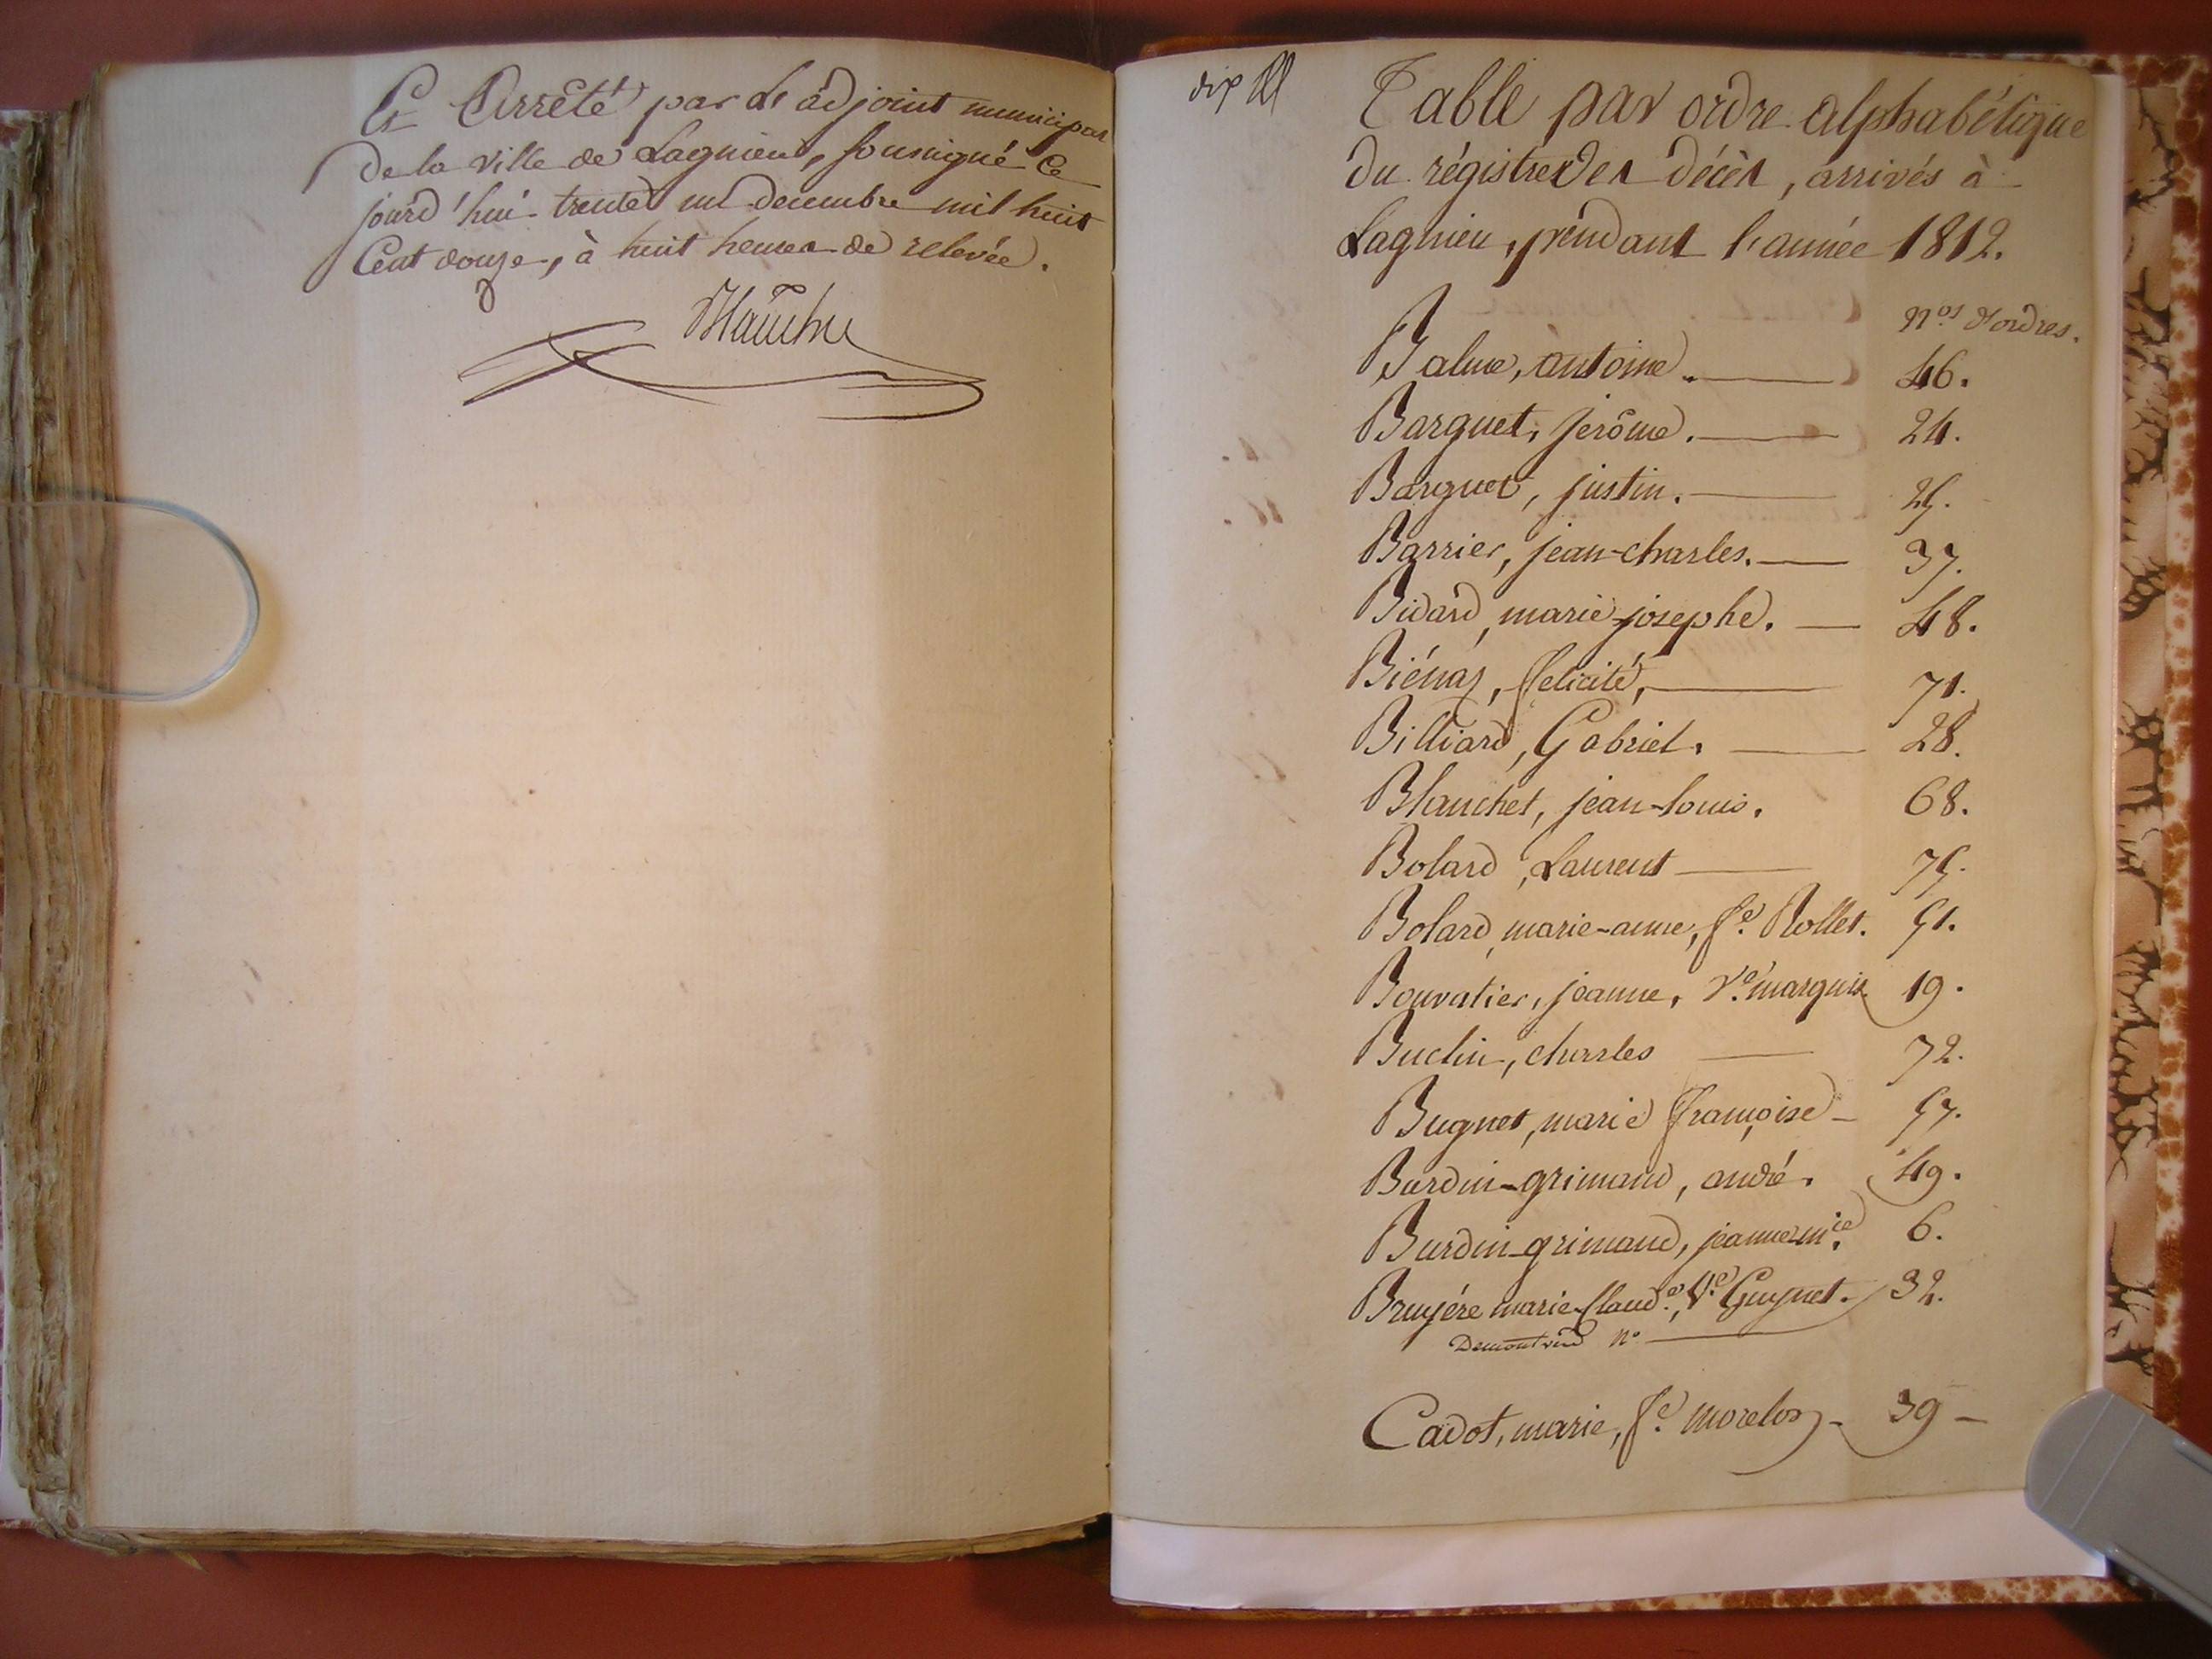 Et Arrêté par Le adjoint municipal
de la ville de Lagnieu, soussigné Ce
jourd'hui trente un decembre mil huit
Cent douze, à huit heures de relevée.
dix
Table par ordre alphabétique
du régistre des décès, arrivés à
Lagnieu, pendant l'année 1812.
Nos. d'ordres.
Balme, antoine. 46.
Barquet, jerôme. 24.
Barquet, justin. 25.
Barrier, jean-charles. 37.
Bidard, marie-josephe. 48.
Biénas, felicité, 71.
Billiard, Gabriel. 28.
Blanchet, jean-louis. 68.
Bolard, Laurent 75.
Bolard, marie-anne, fe. Rollet. 51.
Bouvatier, jeanne, Ve. marquis 19.
Buclin, charles 72.
Bugnet, marie françoise 57.
Burdin-grimaud, andré. 49.
Burdin-grimaud, jeanne mie. 6.
Bruyére marie Claude., Ve. Guynet. 32.
Demontvend no
Cadot, marie, fe. morelos 39